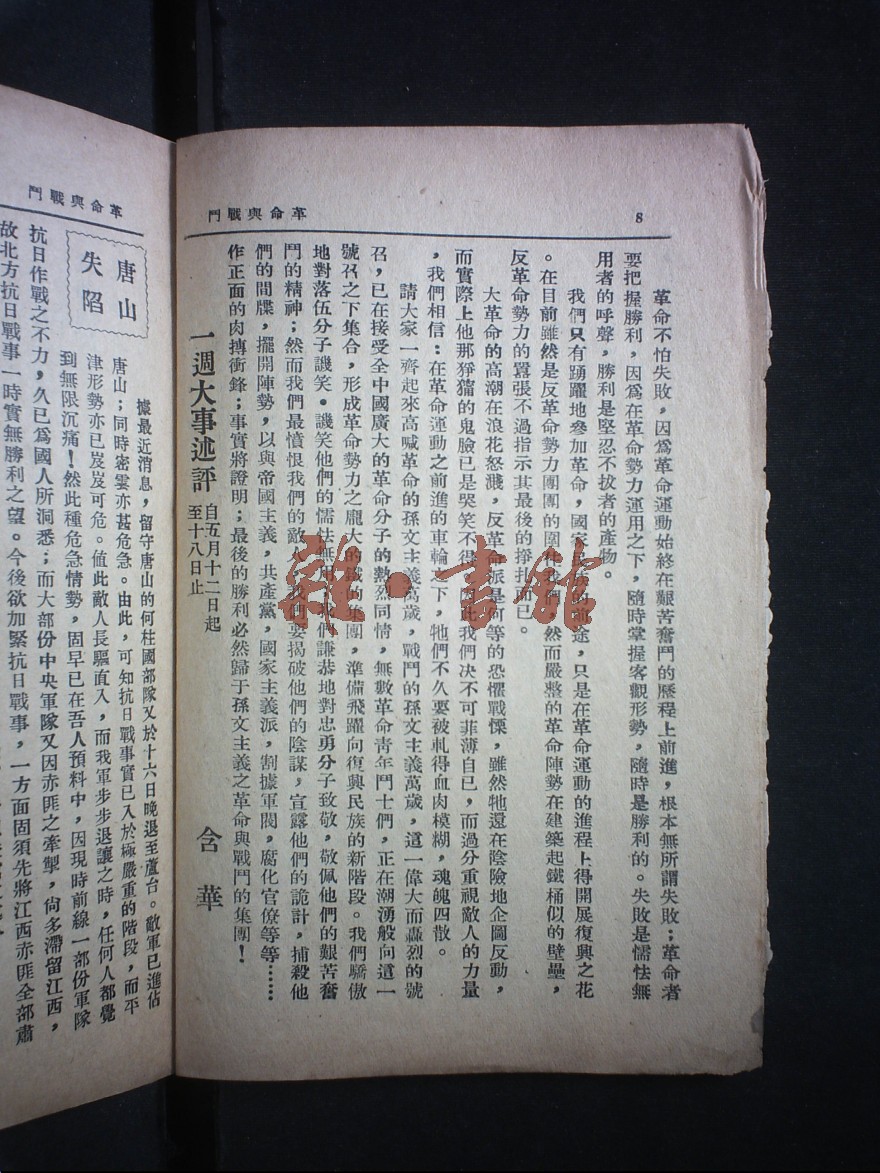 8
革命與戰鬥
革命不怕失敗，因爲革命運動始終在艱苦奮鬥的歷程上前進，根本無所謂失敗；革命者
要把握勝利，因爲在革命勢力運用之下，隨時掌握客觀形勢，隨時是勝利的。失敗是懦怯無
用者的呼聲，勝利是堅忍不拔者的產物。
我們只有踴躍地參加革命，國家民族的前途，只是在革命運動的進程上得開展復興之花
。在目前雖然是反革命勢力團團的圍住我們，然而嚴整的革命陣勢在建築起鐵桶似的壁壘，
反革命勢力的囂張不過指示其最後的掙扎而已。
大革命的高潮在浪花怒濺，反革命派是何等的恐懼戰慄，雖然牠還在陰險地企圖反動，
而實際上他那猙獰的鬼臉已是哭笑不得，因此我們决不可菲薄自己，而過分重視敵人的力量
，我們相信：在革命運動之前進的車輪之下，牠們不久要被軋得血肉模糊，魂魄四散。
請大家一齊起來高喊革命的孫文主義萬歲，戰鬥的孫文主義萬歲，這一偉大而轟烈的號
召，已在接受全中國廣大的革命分子的熱烈同情，無數革命青年鬥士們，正在潮湧般向這一
號召之下集合，形成革命勢力之龐大的鐵的集團，準備飛躍向復興民族的新階段。我們驕傲
地對落伍分子譏笑。譏笑他們的懦怯無用，我們謙恭地對忠勇分子致敬，敬佩他們的艱苦奮
鬥的精神；然而我們最憤恨我們的敵人，我們要揭破他們的陰謀，宣露他們的詭計，捕殺他
們的間牒，擺開陣勢，以與帝國主義，共產黨，國家主義派，割據軍閥，腐化官僚等等……
作正面的肉搏衝鋒；事實將證明；最後的勝利必然歸于孫文主義之革命與戰鬥的集團！
一週大事述評
自五月十二日起
至十八日止
含華
革命與戰鬥
唐山
失陷
據最近消息，留守唐山的何柱國部隊又於十六日晚退至蘆台。敵軍已進佔
唐山；同時密雲亦甚危急。由此，可知抗日戰事實已入於極嚴重的階段，而平
津形勢亦已岌岌可危。值此敵人長驅直入，而我軍步步退讓之時，任何人都覺
到無限沉痛！然此種危急情勢，固早已在吾人預料中，因現時前線一部份軍隊
抗日作戰之不力，久已爲國人所洞悉；而大部份中央軍隊又因赤匪之牽掣，尙多滯留江西，
故北方抗日戰事一時實無勝利之望。今後欲加緊抗日戰事，一方面固須先將江西赤匪全部肅
雜·書館